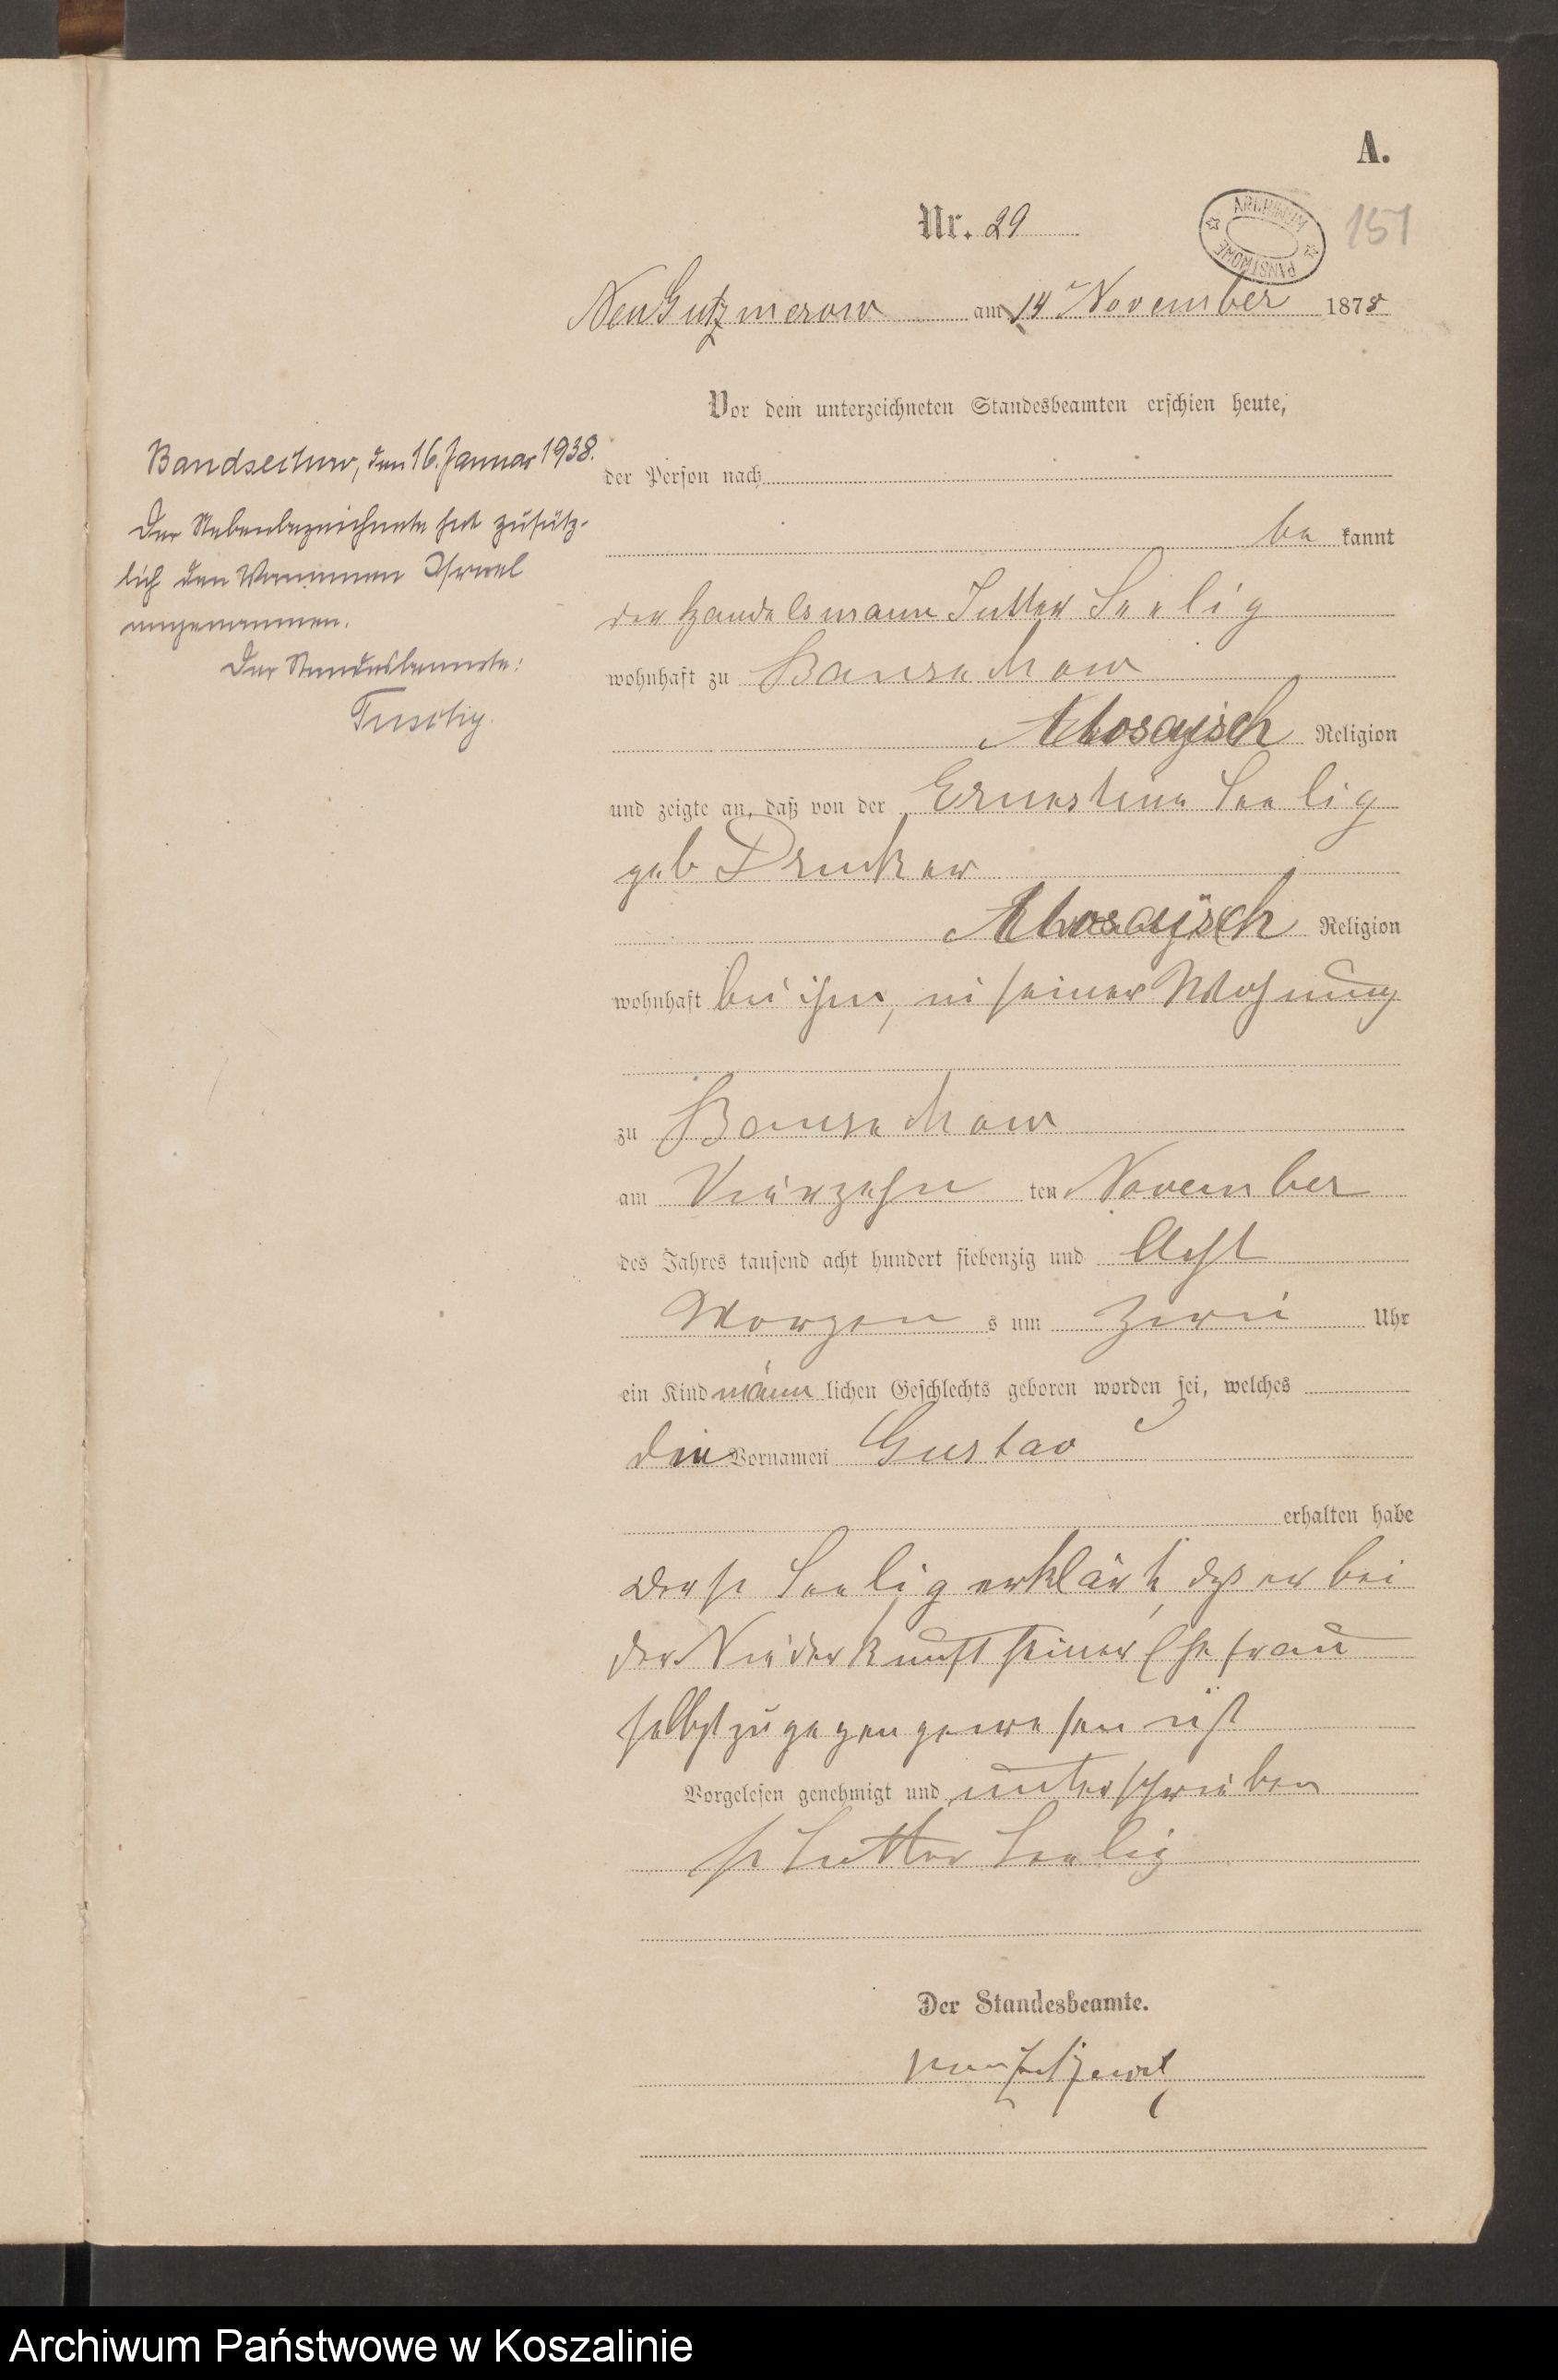 A.
Nr. 29
ARCHIWUM PAŃSTWOWE
151
Neu Gutzmerow am 14 November 1878
Vor dem unterzeichneten Standesbeamten erschien heute,
der Person nach
be kannt
der Handelsmann Seelig
wohnhaft zu Bansekow
Mosaisch Religion
und zeigte an, daß von der Ernestine Seelig
geb Drucker
Mosaisch Religion
wohnhaft bei ihm, in seiner Wohnung
zu Bansekow
am Vierzehn ten November
des Jahres tausend acht hundert siebenzig und Acht
Morgen s um Zwei Uhr
ein Kind männ lichen Geschlechts geboren worden sei, welches
den Vornamen Gustav
erhalten habe
Seelig erklärte, daß er bei
der Niederkunft seiner Ehefrau
selbst zugegen gewesen ist
Vorgelesen genehmigt und unterschrieben
Seelig
Der Standesbeamte.
den 16. Januar 1938.
Der Nebenbezeichnete hat zusätz-
lich den Vornamen Israel
angenommen.
Der Standesbeamte:
Archiwum Państwowe w Koszalinie